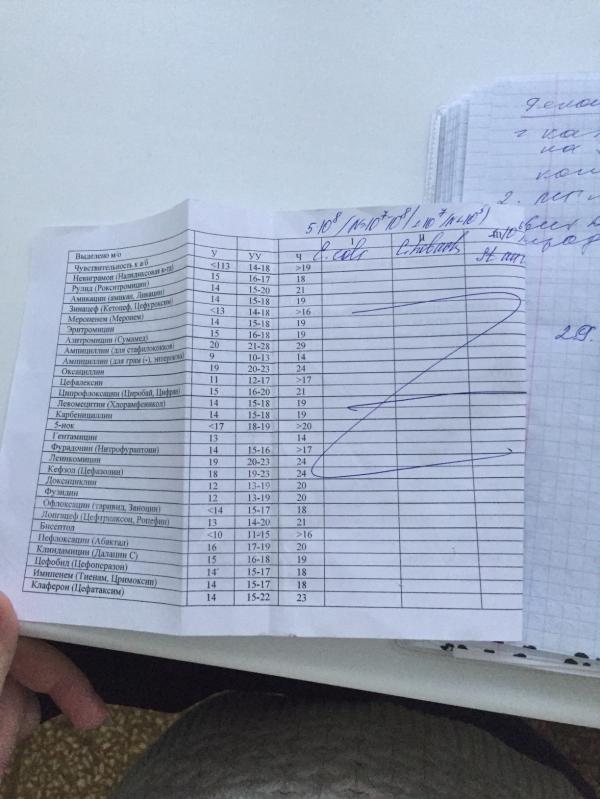 5·10⁸
Выделено м/о У УУ Ч E. coli
Чувствительность к а/б <113 14-18 >19
Невиграмон (Налидиксовая к-та) 15 16-17 18
Рулид (Рокситромицин) 14 15-20 21
Амикацин (амикан, Ликацин) 14 15-18 19
Зинацеф (Кетоцеф, Цефуроксим) <13 14-18 >16
Меронем (Меронем) 14 15-18 19
Эритромицин 15 16-18 19
Азитромицин (Сумамед) 20 21-28 29
Ампициллин (для стафилококков) 9 10-13 14
Ампициллин (для грам (-), энтерококка) 19 20-23 24
Оксациллин 11 12-17 >17
Цефалексин 15 16-20 21
Ципрофлоксацин (Циробай, Цифран) 14 15-18 19
Левомецитин (Хлорамфеникол) 14 15-18 19
Карбенициллин <17 18-19 >20
5-нок 13 14
Гентамицин 14 15-16 >17
Фурадонин (Нитрофурантоин) 19 20-23 24
Линкомицин 18 19-23 24
Кефзол (Цефазолин) 12 13-19 20
Доксициклин 12 13-19 20
Фузидин <14 15-17 18
Офлоксацин (таривид, Заноцин) 13 14-20 21
Лонгацеф (Цефтриаксон, Роцефин) <10 11-15 >16
Бисептол 16 17-19 20
Пефлоксацин (Абактал) 15 16-18 19
Клиндамицин (Далацин С) 14 15-17 18
Цефобид (Цефоперазон) 14 15-17 18
Имипенем (Тиенам, Примоксин) 14 15-22 23
Клафорон (Цефатаксим)
2.
29.